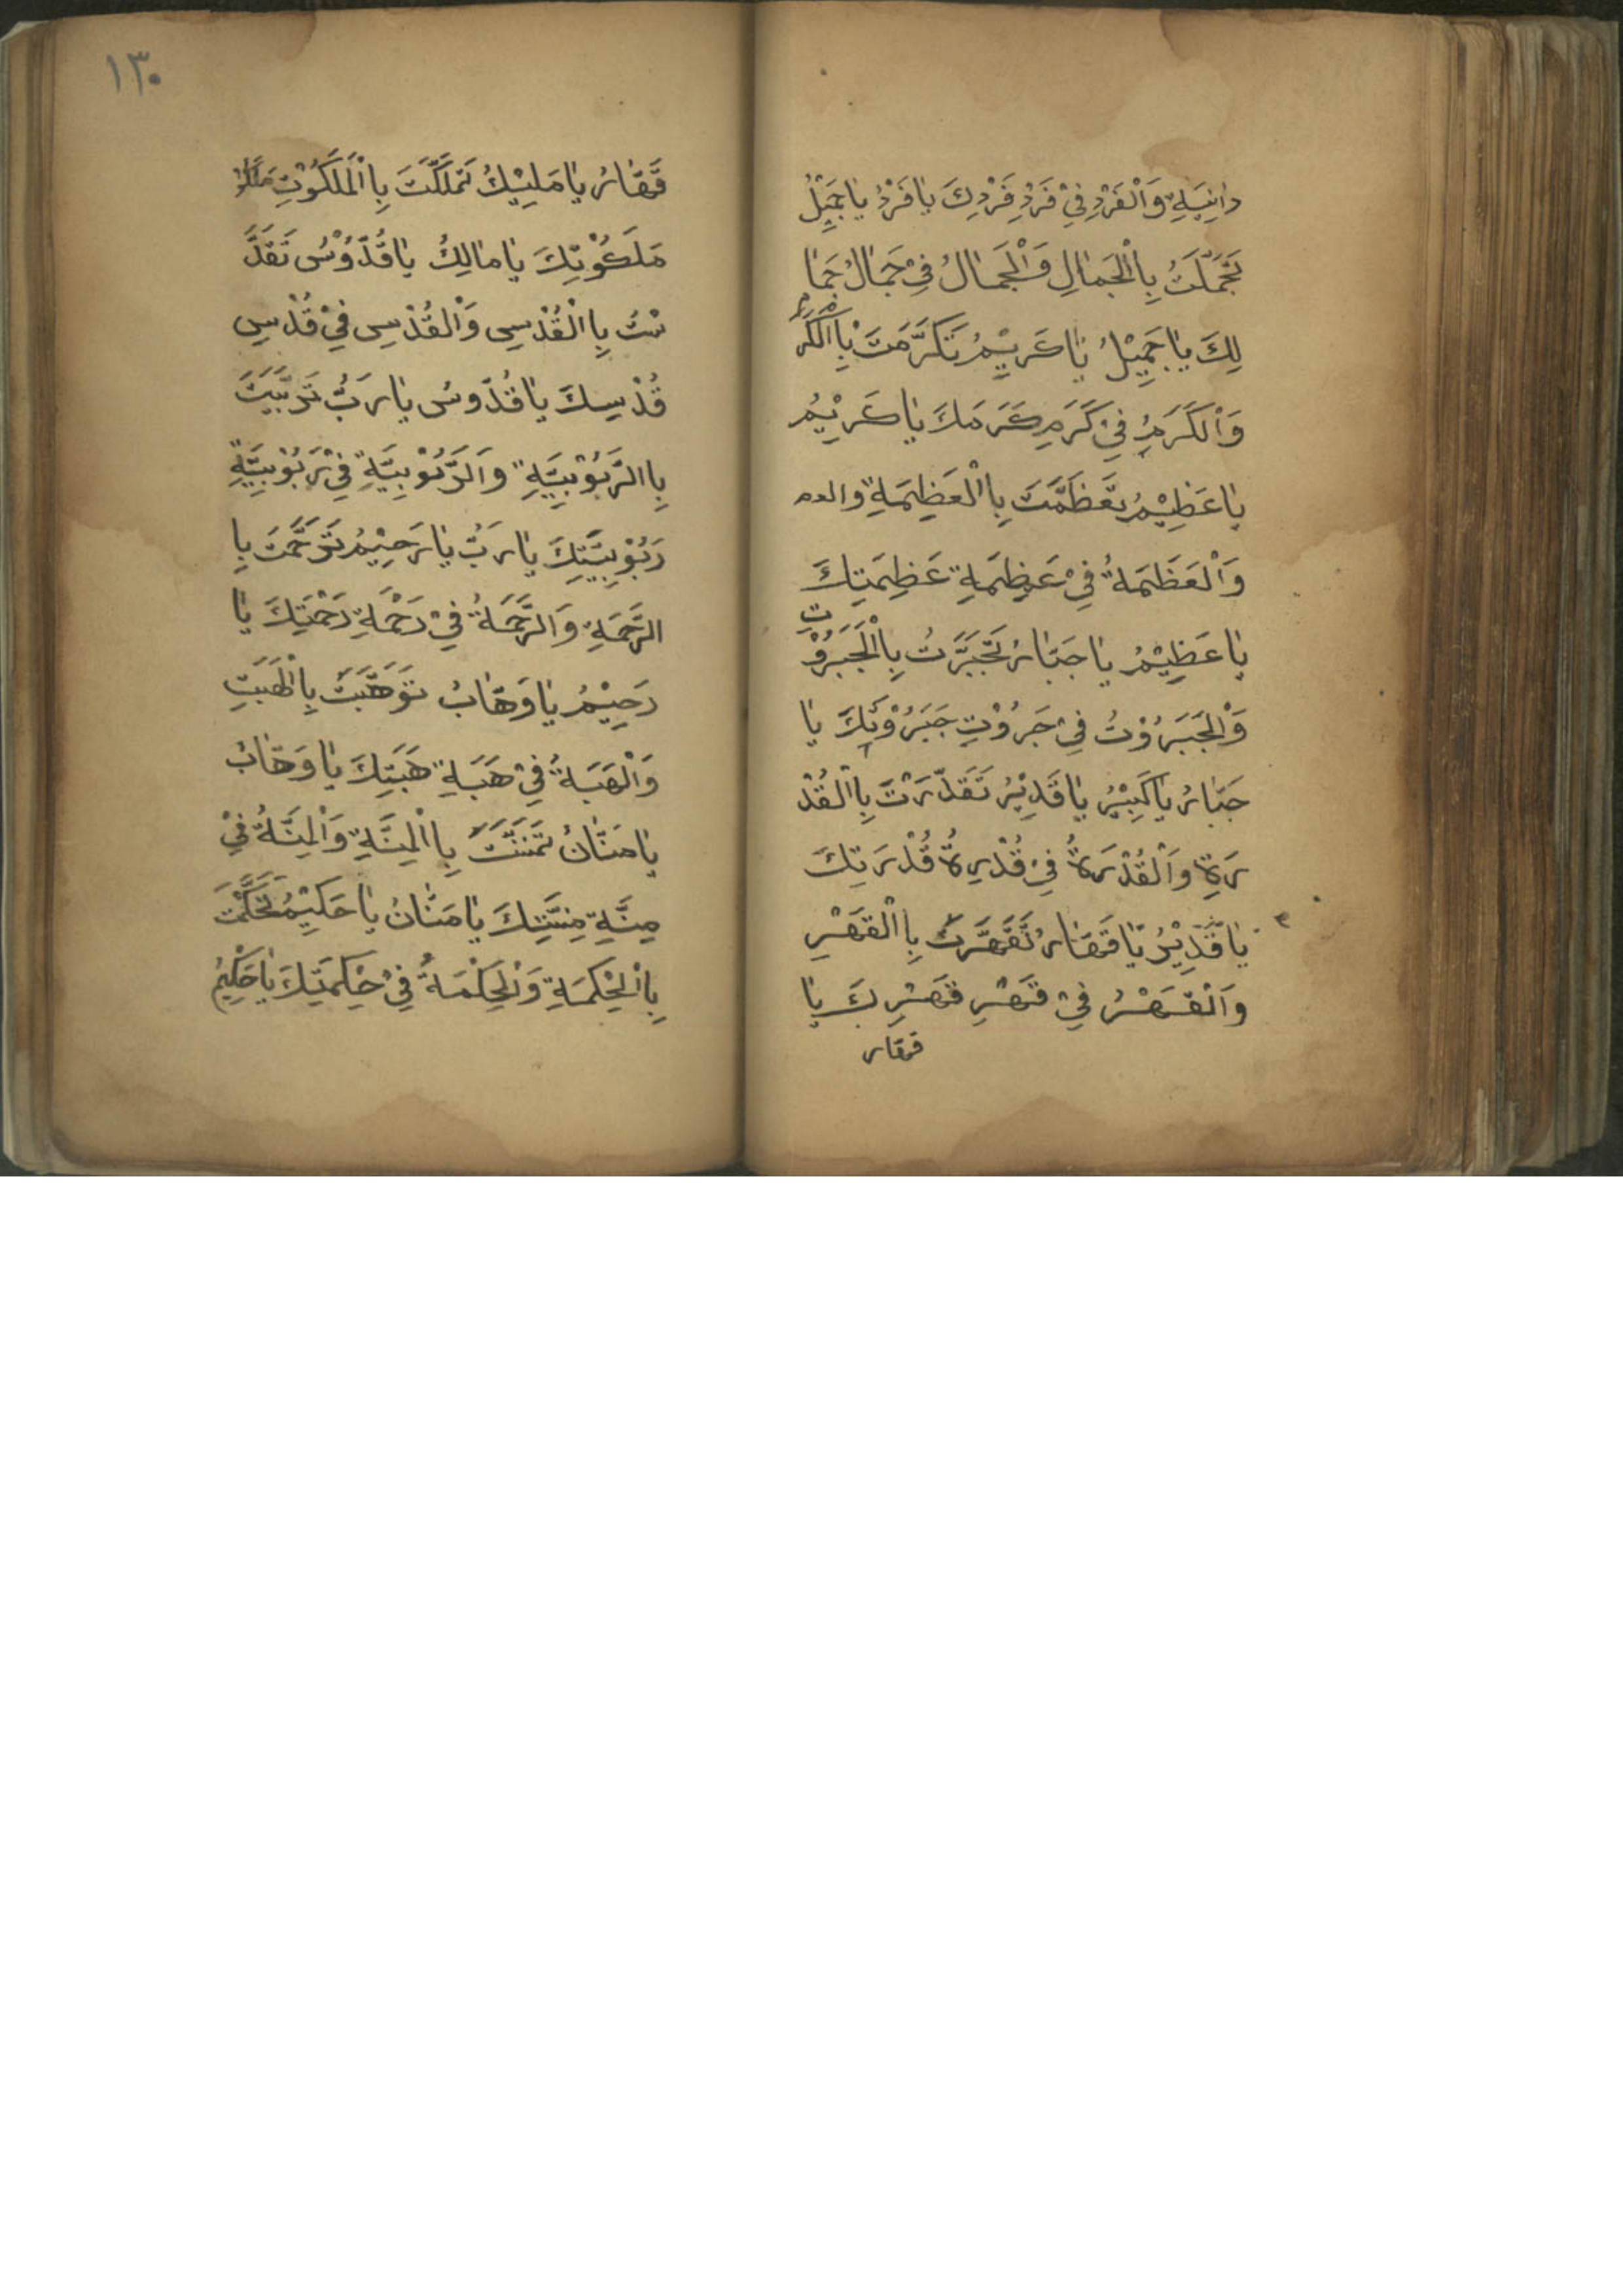 دانِيَةِ وَالْفَرْدِ فِيْ فَرْدِ فَرْدِكَ يَا فَرْدُ يَا جَمِيْلُ
تَجَمَّلَتُ بِاالْجَمَالِ وَالْجَمَالُ فِيْ جَمَالُ جَمَا
لِكَ يَا جَمِيْلُ يَا كَرِيْمُ تَكَرَّمَتَ بِاالْكَرَمِ
وَالْكَرَمُ فِيْ كَرَمِ كَرَمَكَ يَا كَرِيْمُ
يَا عَظِيْمُ تَعَظَّمَتَ بِاالْعَظِمَةِ والعـ
وَالْعَظَمَةُ فِيْ عَظِمَةِ عَظِمَتِكَ
يَا عَظِيْمُ يَا جَبَّارُ تَجَبَّرَتُ بِاالْجَبَرُوْتِ
وَالْجَبَرُوْتُ فِيْ جَرُوْتِ جَبَرُوْتِكَ يَا
جَبَّارُ يَا كَبِيْرُ يَا قَدِيْرُ تَقَدَّرَتَ بِاالْقُدْ
رَةِ وَالْقُدْرَةُ فِيْ قُدْرِةُ قُدْرَتِكَ
يَا قَدِيْرُ يَا قَهَّارُ تَقَهَّرَتَ بِاالْقَهْرِ
وَالْقَهْرُ فِيْ قَهْرِ قَهْرِكَ يَا
قهار
١٣٠
قَهَّارُ يَا مَلِيْكُ تَمَلَّكَتَ بِاالْمَلَكُوْتِ
مَلَكُوْتِكَ يَا مَالِكُ يَا قُدُّوْسُ تَقَدَّ
سْتُ بِاالْقُدْسِ وَالْقُدْسِ فِيْ قُدْسِ
قُدْسِكَ يَا قُدُّوسُ يَا رَبُّ تَرَبَّيَتَ
بِاالرَّبُوْبِيَّةِ وَالرَّبُوْبِيَّةِ فِيْ رَبُوْبِيَّةِ
رَبُوْبِيَّتِكَ يَا رَبُّ يَا رَحِيْمُ تَرَحَّمَتَ بِا
الرَّحَمَةِ وَالرَّحَمَةُ فِيْ رَحْمَةِ رَحْمَتِكَ يَا
رَحِيْمُ يَا وَهَّابُ تَوَهَّبَتَ بِاالْهَبَتِ
وَالْهَبَةُ فِيْ هَبَةِ هَبَتِكَ يَا وَهَّابُ
يَا مَنَّانُ تَمَنَّنَتَ بِاالْمِنَّةِ وَالْمِنَّةُ فِيْ
مِنَّةِ مِنَّتِكَ يَا مَنَّانُ يَا حَكِيْمُ تَحَكَّمْتَ
بِاالْحِكْمَةِ وَالْحِكْمَةُ فِيْ حِكْمَتِكَ يَا حَكِيْمُ